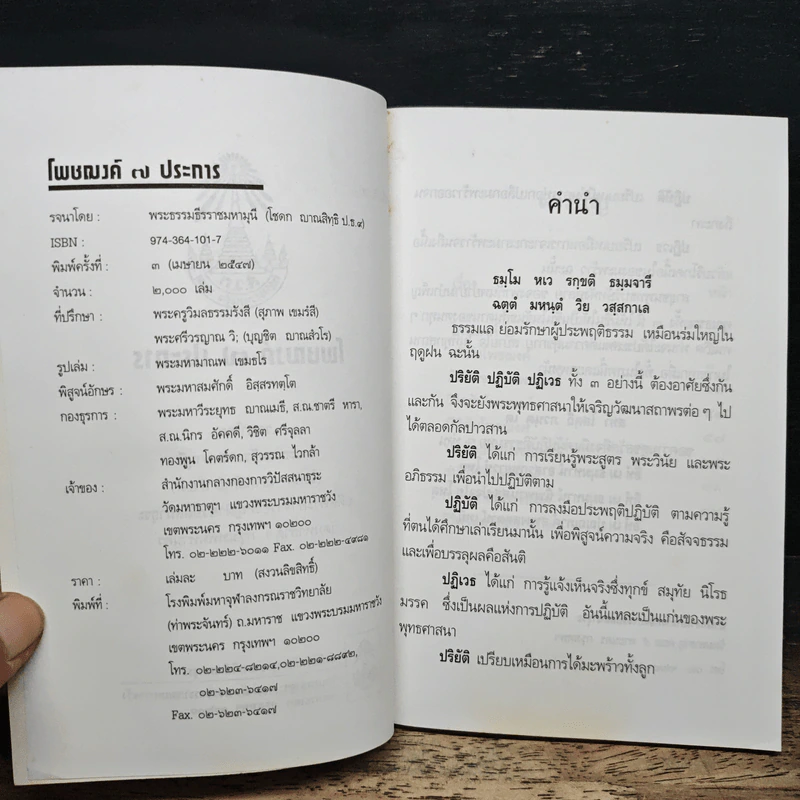 โพชฌงค์ ๗ ประการ
รจนาโดย : พระธรรมธีรราชมหามุนี (โชดก ญาณสิทฺธิ ป.ธ.๙)
ISBN : 974-364-101-7
พิมพ์ครั้งที่ : ๓ (เมษายน ๒๕๔๗)
จำนวน : ๒,๐๐๐ เล่ม
ที่ปรึกษา : พระครูวิมลธรรมรังสี (สุภาพ เขมรํสี)
พระศรีวรญาณ วิ; (บุญชิต ญาณสํวโร)
รูปเล่ม : พระมหามาณพ เขมธโร
พิสูจน์อักษร : พระมหาสมศักดิ์ อิสฺสรทตฺโต
กองธุรการ : พระมหาวีระยุทธ ญาณเมธี, ส.ณ.ชาตรี หารา,
ส.ณ.นิกร อัคคดี, วิชิต ศรีจุลลา
ทองพูน โคตร์ดก, สุวรรณ ไวกล้า
เจ้าของ : สำนักงานกลางกองการวิปัสสนาธุระ
วัดมหาธาตุฯ แขวงพระบรมมหาราชวัง
เขตพระนคร กรุงเทพฯ ๑๐๒๐๐
โทร. ๐๒-๒๒๒-๖๐๑๑ Fax. ๐๒-๒๒๒-๔๙๘๑
ราคา : เล่มละ บาท (สงวนลิขสิทธิ์)
พิมพ์ที่ : โรงพิมพ์มหาจุฬาลงกรณราชวิทยาลัย
(ท่าพระจันทร์) ถ.มหาราช แขวงพระบรมมหาราชวัง
เขตพระนคร กรุงเทพฯ ๑๐๒๐๐
โทร. ๐๒-๒๒๔-๘๒๑๔,๐๒-๒๒๑-๘๘๙๒,
๐๒-๖๒๓-๖๔๑๗
Fax. ๐๒-๖๒๓-๖๔๑๗
คำนำ
ธมฺโม หเว รกฺขติ ธมฺมจารี
ฉตฺตํ มหนฺตํ วิย วสฺสกาเล
ธรรมแล ย่อมรักษาผู้ประพฤติธรรม เหมือนร่มใหญ่ใน
ฤดูฝน ฉะนั้น
ปริยัติ ปฏิบัติ ปฏิเวธ ทั้ง ๓ อย่างนี้ ต้องอาศัยซึ่งกัน
และกัน จึงจะยังพระพุทธศาสนาให้เจริญวัฒนาสถาพรต่อๆ ไป
ได้ตลอดกัลปาวสาน
ปริยัติ ได้แก่ การเรียนรู้พระสูตร พระวินัย และพระ
อภิธรรม เพื่อนำไปปฏิบัติตาม
ปฏิบัติ ได้แก่ การลงมือประพฤติปฏิบัติ ตามความรู้
ที่ตนได้ศึกษาเล่าเรียนมานั้น เพื่อพิสูจน์ความจริง คือสัจจธรรม
และเพื่อบรรลุผลคือสันติ
ปฏิเวธ ได้แก่ การรู้แจ้งเห็นจริงซึ่งทุกข์ สมุทัย นิโรธ
มรรค ซึ่งเป็นผลแห่งการปฏิบัติ อันนี้แหละเป็นแก่นของพระ
พุทธศาสนา
ปริยัติ เปรียบเหมือนการได้มะพร้าวทั้งลูก